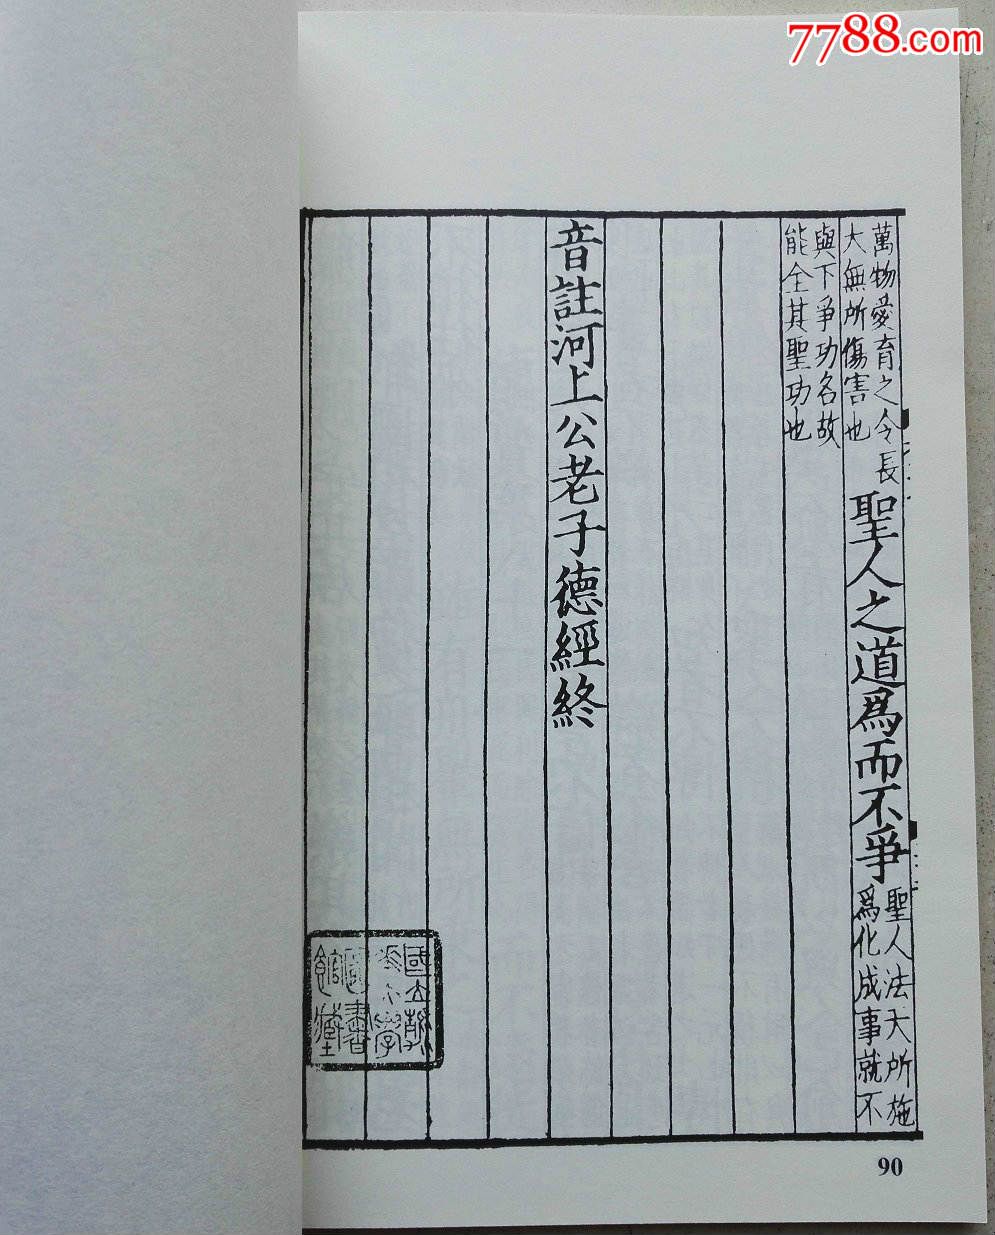 7788.com
萬物愛育之令長
大無所傷害也
聖人之道爲而不爭
聖人法天所施
爲化成事就不
與下爭功名故
能全其聖功也
音註河上公老子德經終
國立
大學
圖書
館藏
90